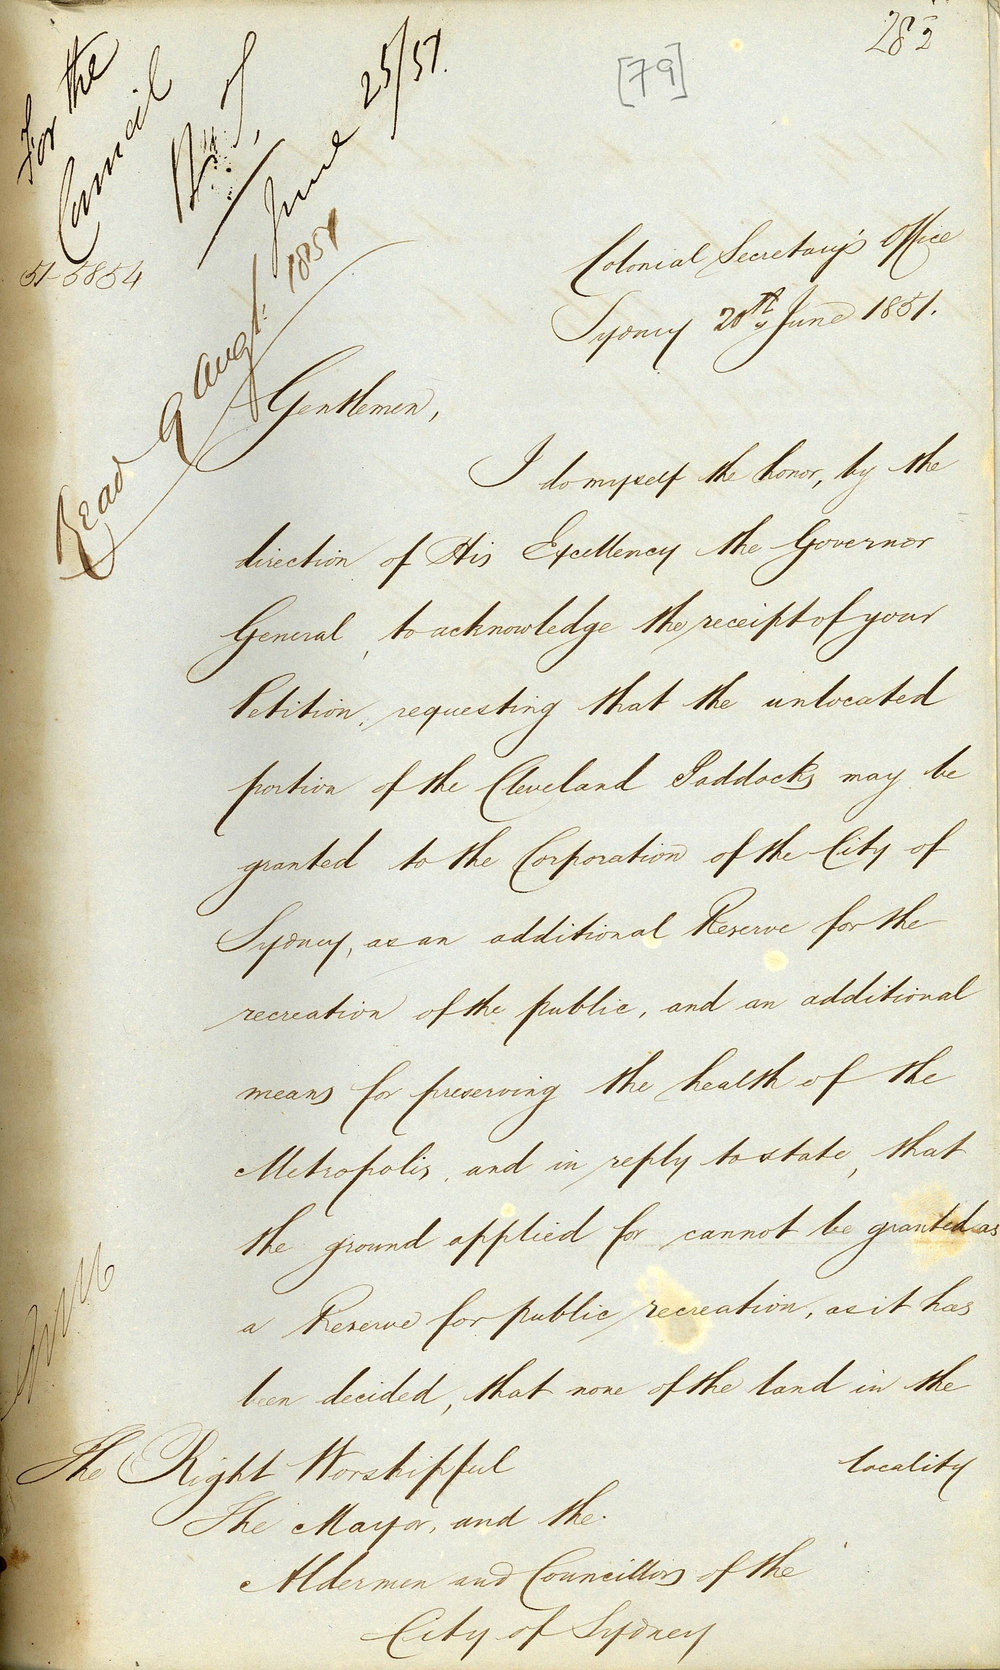 282
[79]
For the
Council
June 25/51.
51-5854
Read 9 Augt. 1851
Colonial Secretary's Office
Sydney 20th June 1851.
Gentlemen,
I do myself the honor, by the
direction of His Excellency the Governor
General, to acknowledge the receipt of your
Petition, requesting that the unlocated
portion of the Cleveland Paddocks may be
granted to the Corporation of the City of
Sydney, as an additional Reserve for the
recreation of the public, and an additional
means for preserving the health of the
Metropolis, and in reply to state, that
the ground applied for cannot be granted as
a Reserve for public recreation, as it has
been decided, that none of the land in the
locality
The Right Worshipful
The Mayor, and the
Aldermen and Councillors of the
City of Sydney